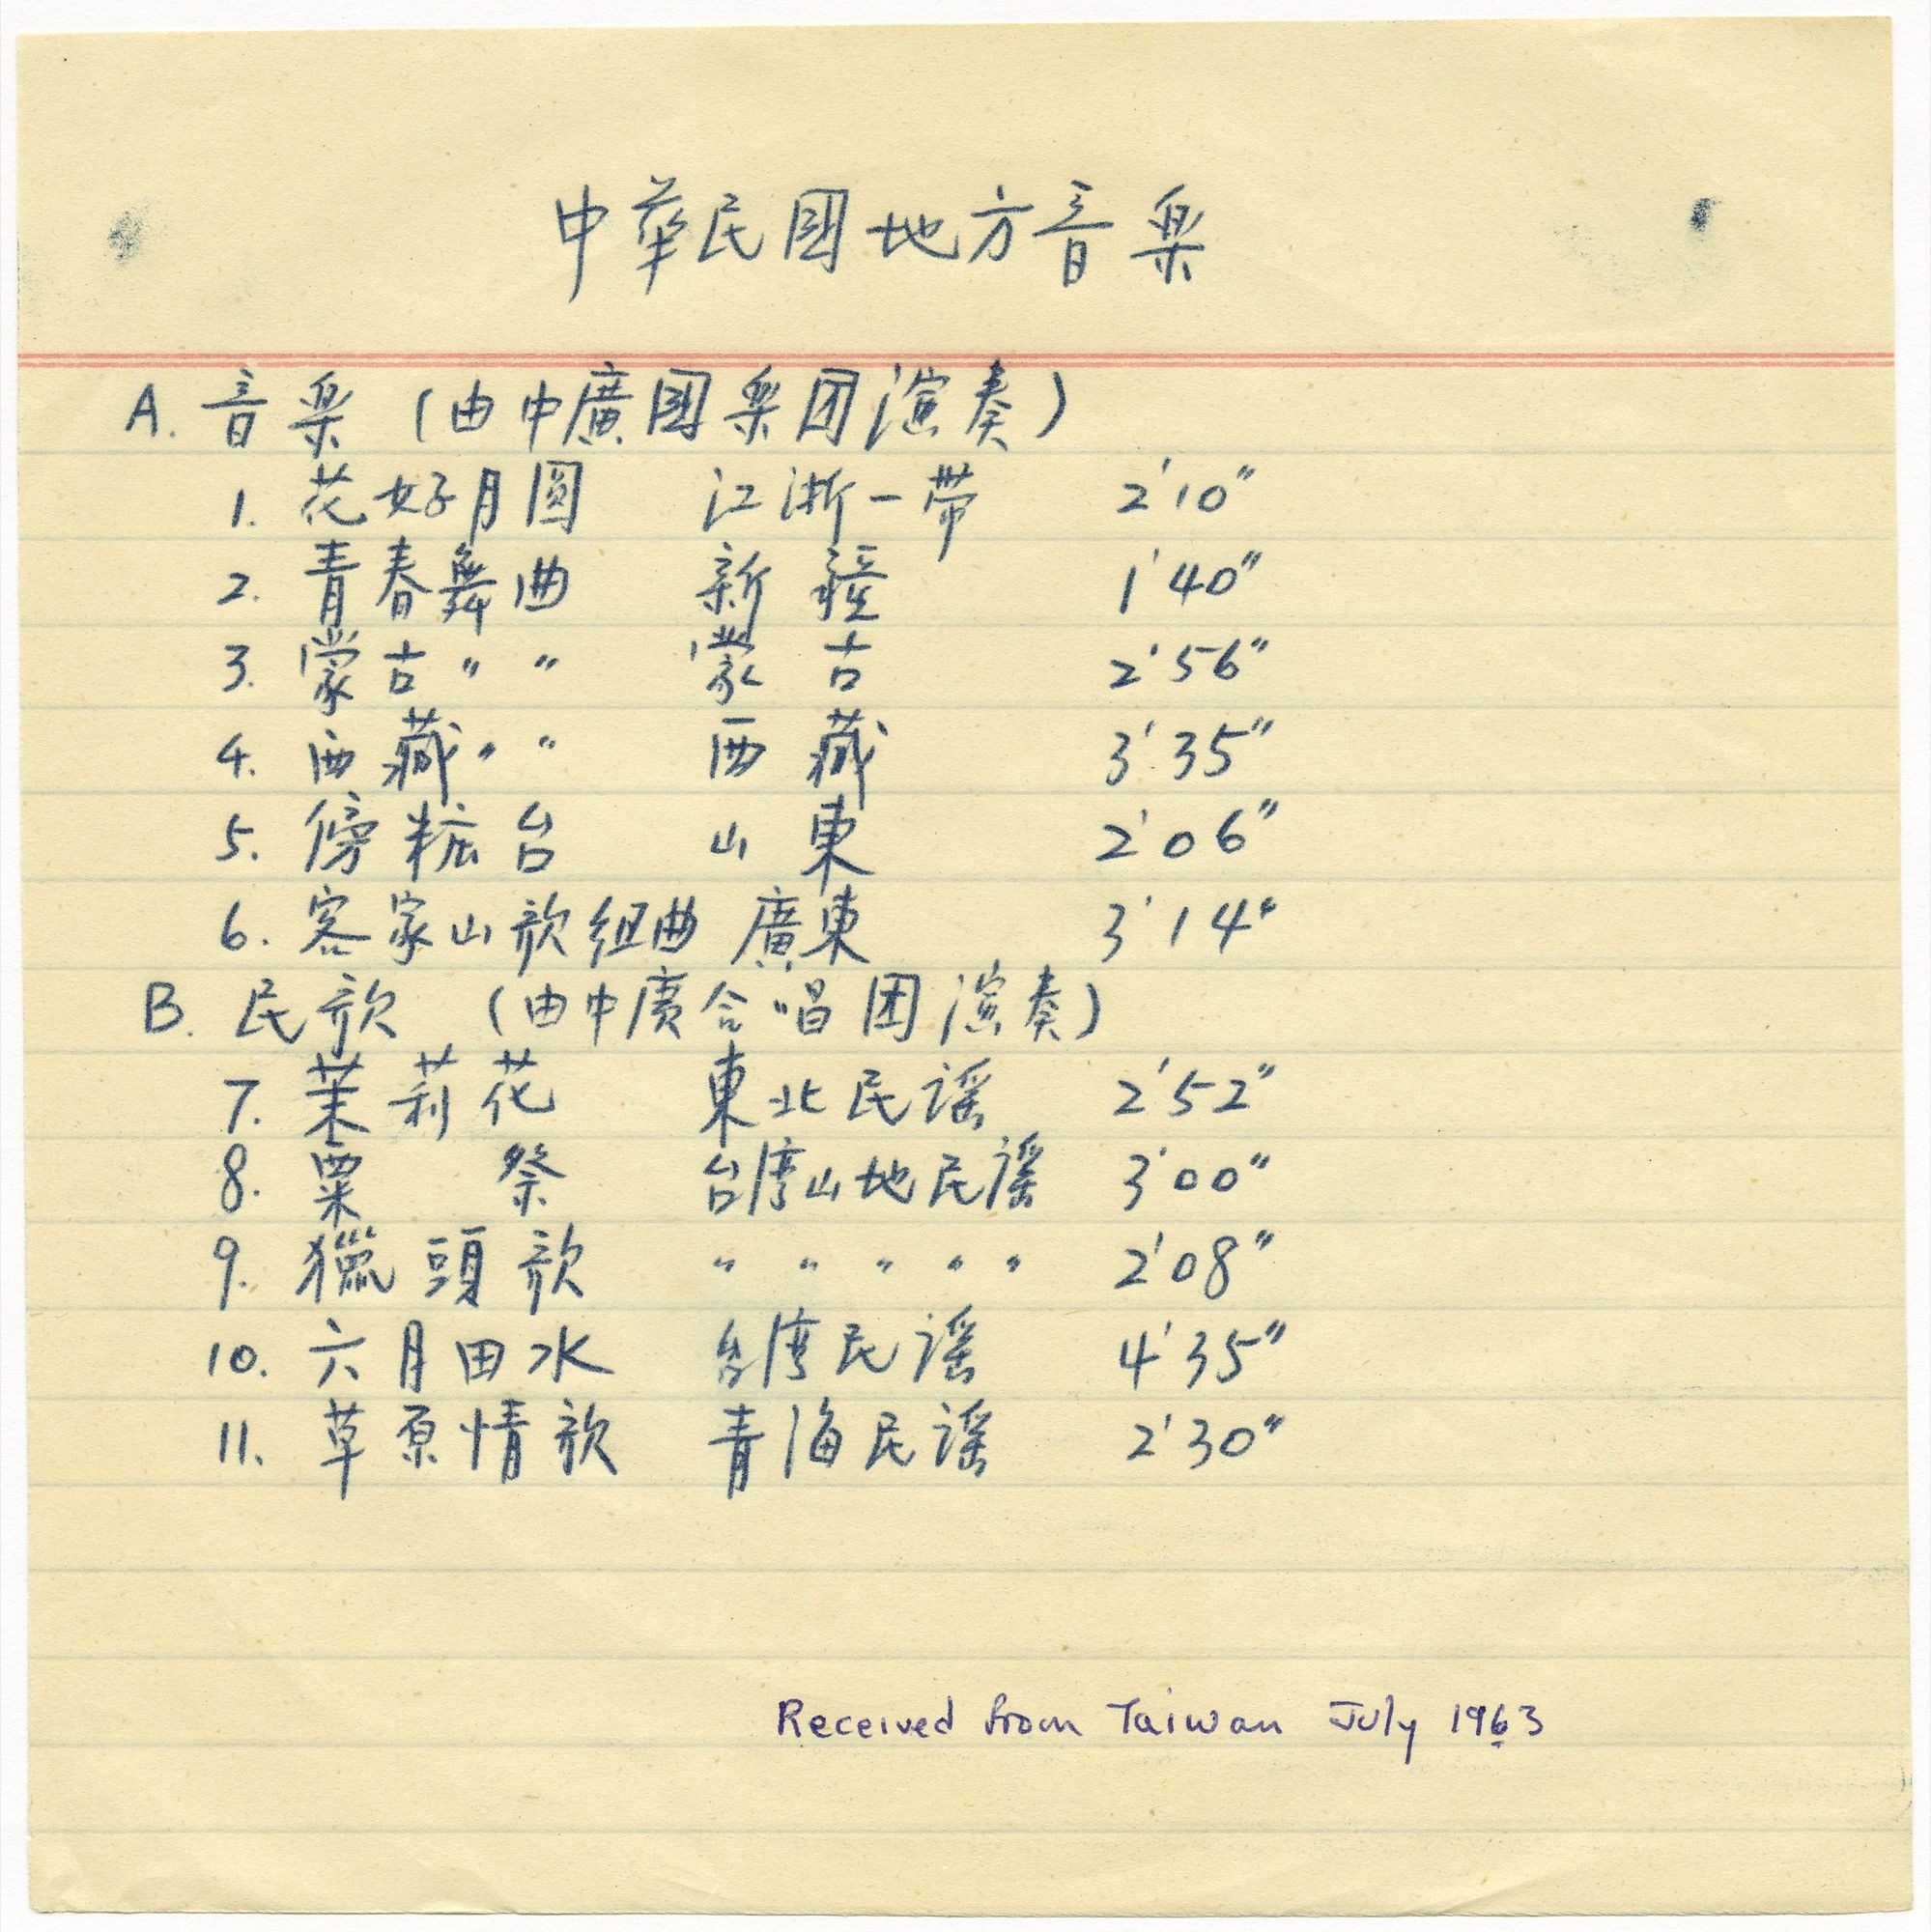 中華民國地方音楽
A. 音楽 (由中廣國楽团演奏)
1. 花好月圓 江浙一帶 2'10"
2. 青春舞曲 新疆 1'40"
3. 蒙古〃〃 蒙古 2'56"
4. 西藏〃〃 西藏 3'35"
5. 傍粧台 山東 2'06"
6. 客家山歌组曲 廣東 3'14"
B. 民歌 (由中廣合唱团演奏)
7. 茉莉花 東北民謡 2'52"
8. 粟祭 台湾山地民謡 3'00"
9. 獵頭歌 〃〃〃〃〃 2'08"
10. 六月田水 台湾民謡 4'35"
11. 草原情歌 青海民謡 2'30"
Received from Taiwan July 1963